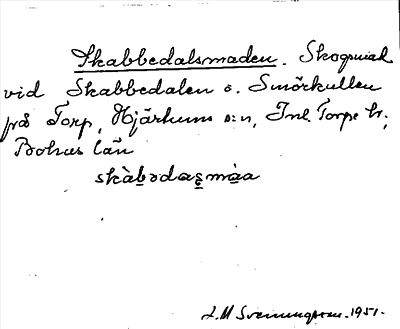 Skabbedalsmaden. Skogsmad
vid Skabbedalen o. Smörkullen
på Torp, Hjärtums s:n, Inl. Torpe hd,
Bohus län
skàb̲ədas̲m̀a̲a
L.M Svenungsson. 1951.